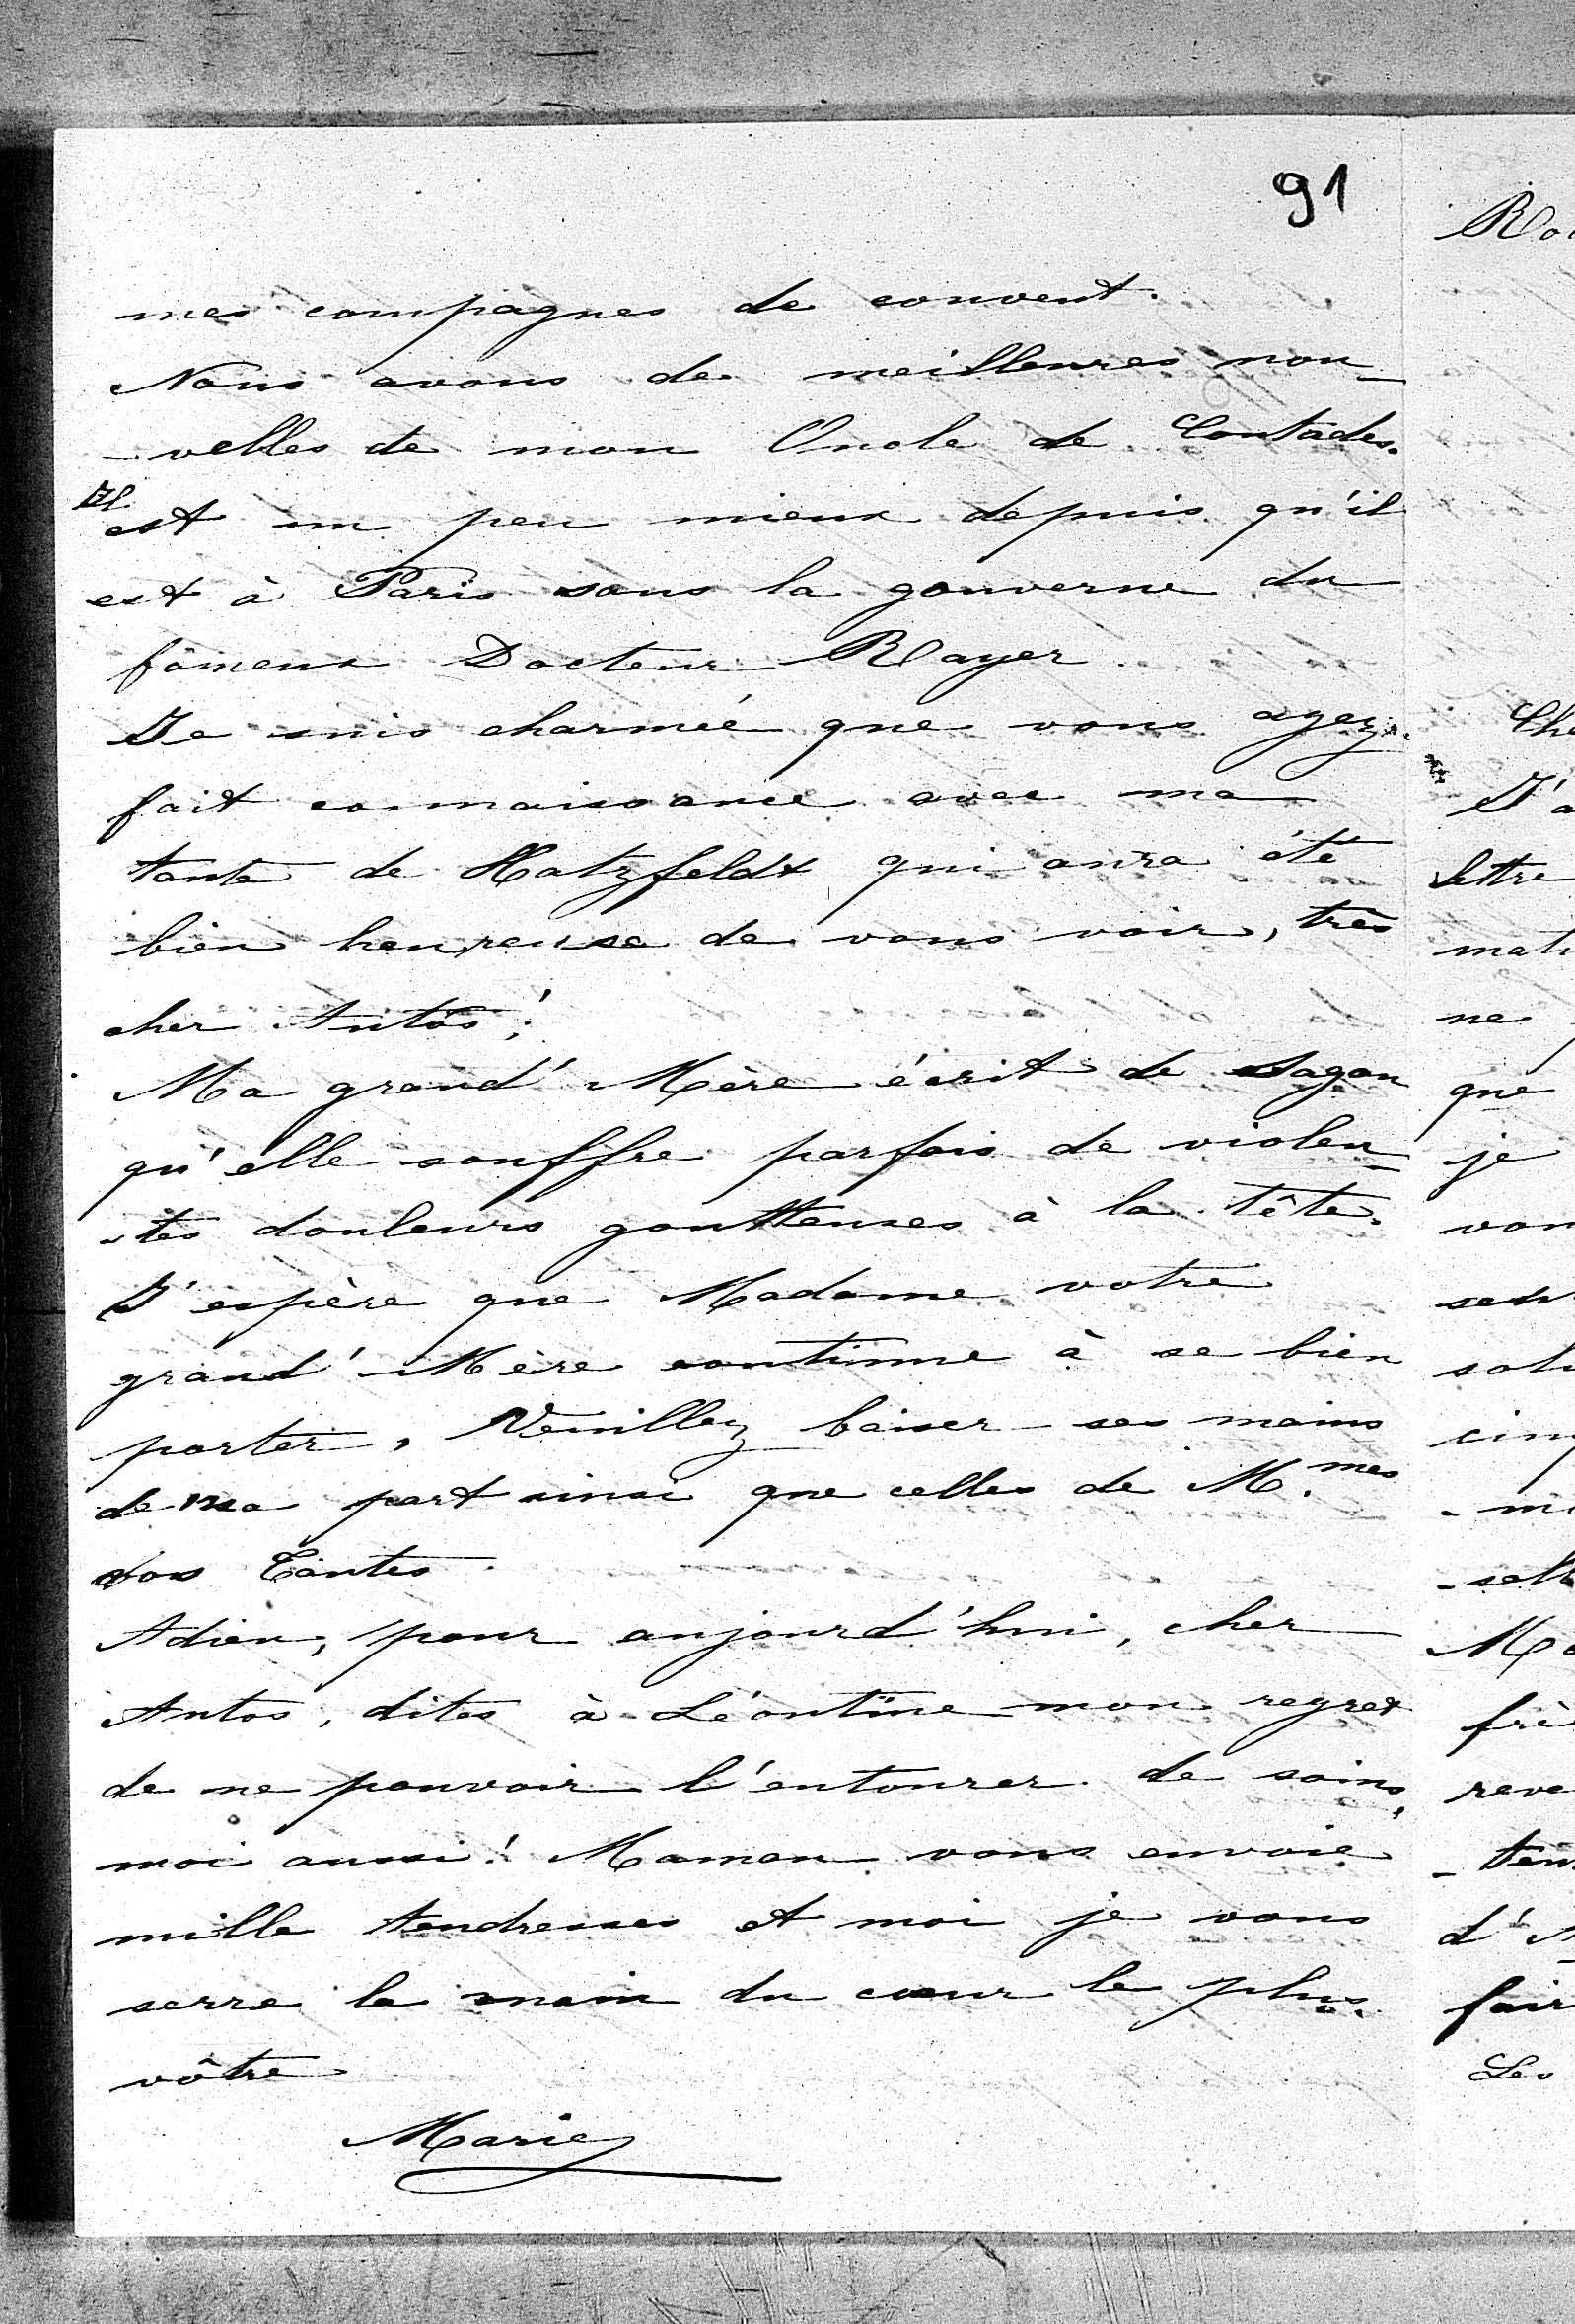 91
mes compagnes de couvent.
Nous avons de meilleures nou-
-velles de mon Oncle de Contades.
Il est un peu mieux depuis qu'il
est à Paris sous la gouverne du
fameux Docteur Rayer.
Je suis charmée que vous ayez
fait connaissance avec ma
tante de Hatzfeldt qui aura été
bien heureuse de vous voir, très
cher Antos!
Ma grand' Mère écrit de Sagan
qu'elle souffre parfois de violen-
-tes douleurs goutteuses à la tête.
J'espère que Madame votre
grand' Mère continue à se bien
porter, Veuillez baiser ses mains
de ma part ainsi que celles de M.mes
vos Tantes.
Adieu, pour aujourd'hui, cher
Antos, dites à Léontine mon regret
de ne pouvoir l'entourer de soins,
moi aussi! Maman vous envoie
mille tendresses et moi je vous
serre la main du cœur le plus
vôtre
Marie
J'a
lettre
ne
que
je